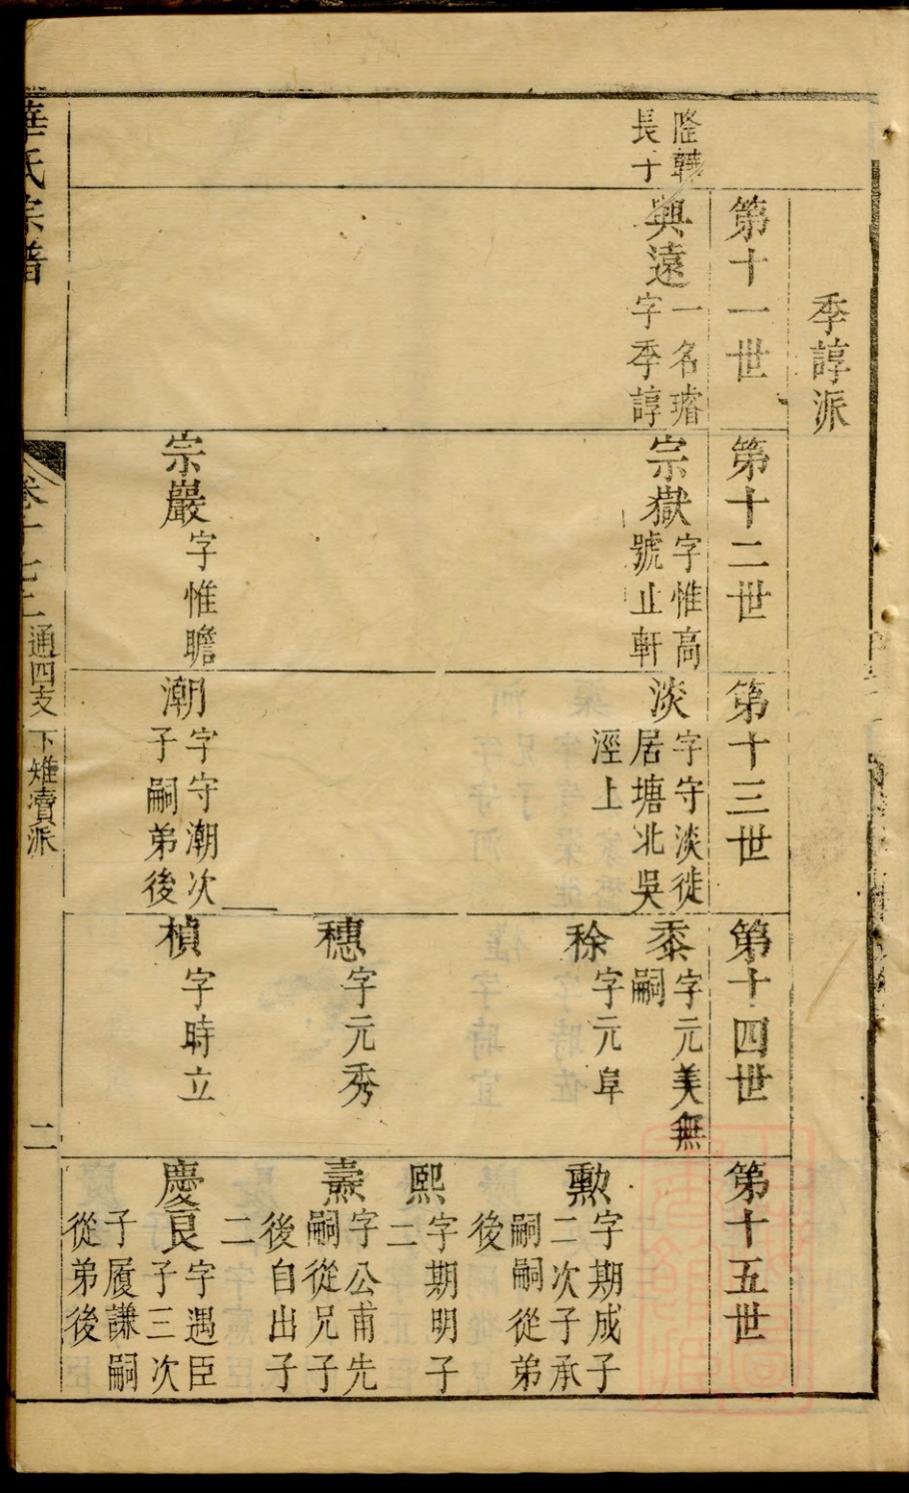 季諄派
第十一世
隆韓
長子
興遠
一名瑃
字季諄
第十二世
宗嶽
字惟高
號止軒
宗巖
字惟瞻
第十三世
淡
字守淡徙
居塘北吳
涇上
潮
字守潮次
子嗣弟後
第十四世
黍
字元美無
嗣
稌
字元阜
穗
字元秀
楨
字時立
第十五世
勲
字期成子
二次子承
嗣嗣從弟
後
熙
字期明子
二
燾
字公甫先
嗣從兄子
後自出子
二
慶良
字遇臣
子三次
子履謙嗣
從弟後
華氏宗譜
通四支
下雉瀆派
二